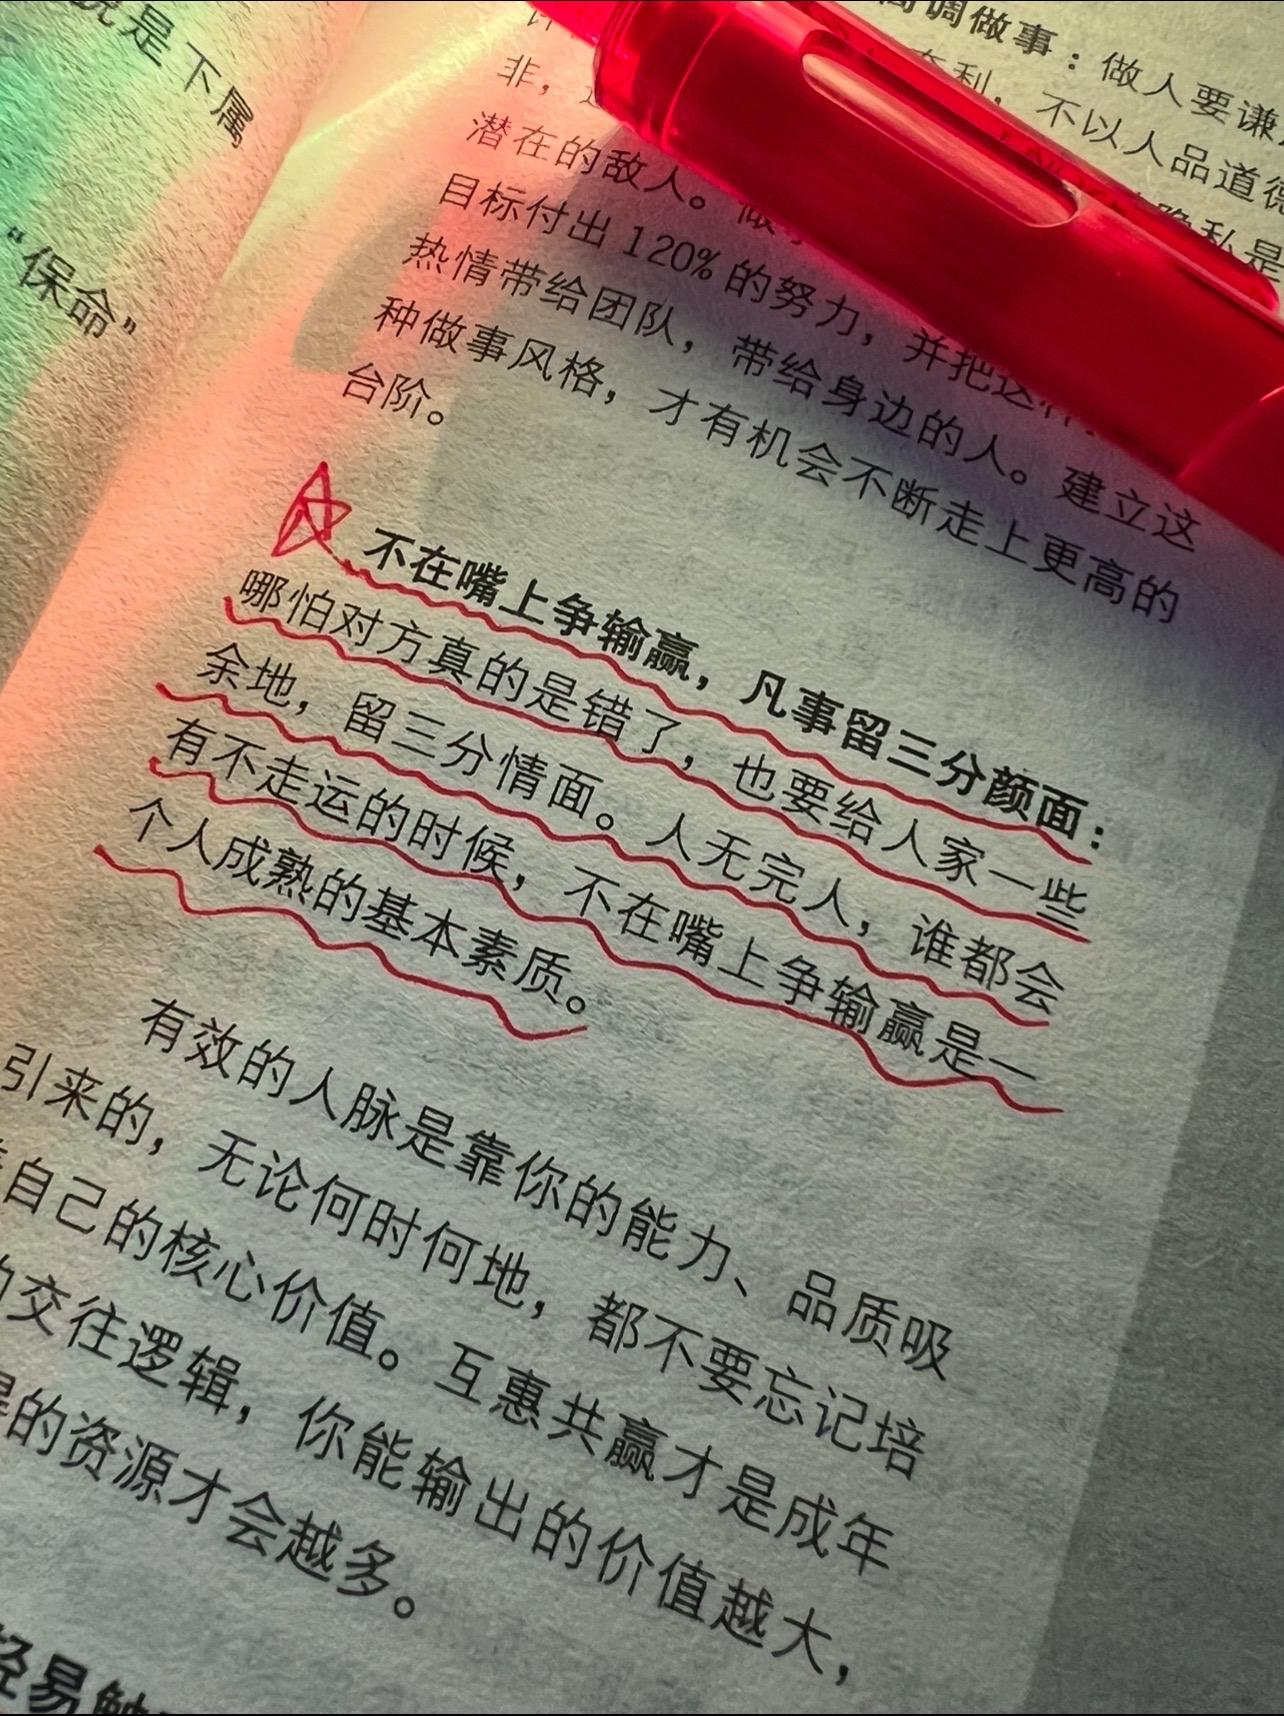 是下属
“保命”
高调做事：做人要谦
不以人品道德
非，
潜在的敌人。
目标付出120%的努力，并把这种
热情带给团队，带给身边的人。建立这
种做事风格，才有机会不断走上更高的
台阶。
不在嘴上争输赢，凡事留三分颜面：
哪怕对方真的是错了，也要给人家一些
余地，留三分情面。人无完人，谁都会
有不走运的时候，不在嘴上争输赢是一
个人成熟的基本素质。
有效的人脉是靠你的能力、品质吸
引来的，无论何时何地，都不要忘记培
自己的核心价值。互惠共赢才是成年
的交往逻辑，你能输出的价值越大，
得的资源才会越多。
轻易触